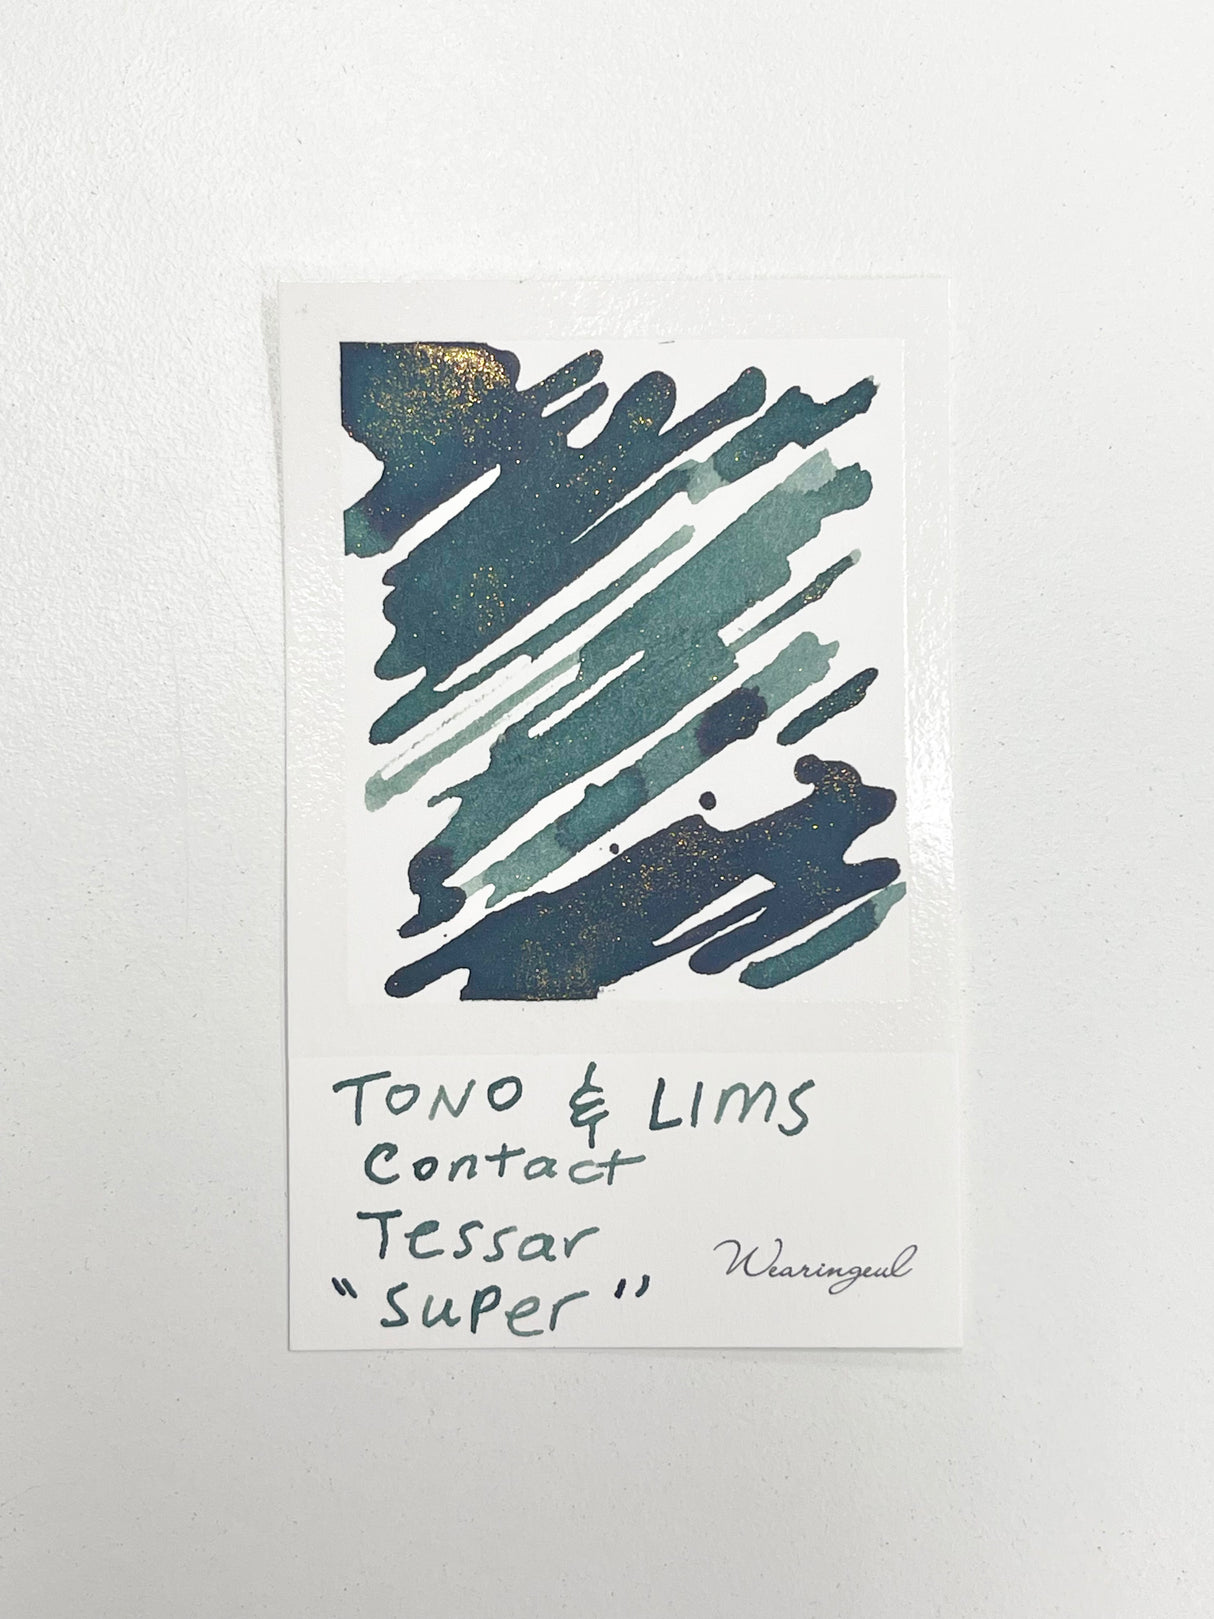 TONO & LIMS
Contact
Tessar
"Super"
Wearingeul